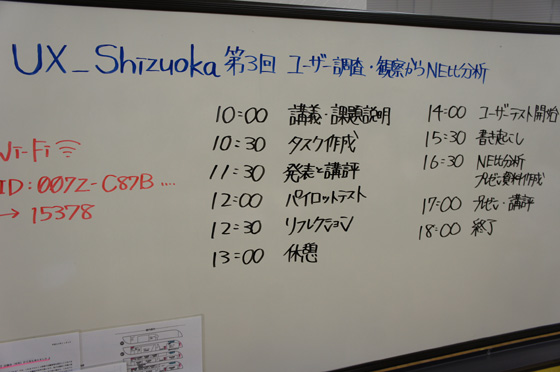 UX_Shizuoka 第3回 ユーザー調査・観察からNE比分析
Wi-Fi
ID:007Z-C87B....
→ 15378
10:00 講義・課題説明
10:30 タスク作成
11:30 発表と講評
12:00 パイロットテスト
12:30 リフレクション
13:00 休憩
14:00 ユーザーテスト開始
15:30 書き起こし
16:30 NE比分析
プレゼン資料作成
17:00 プレゼン・講評
18:00 終了